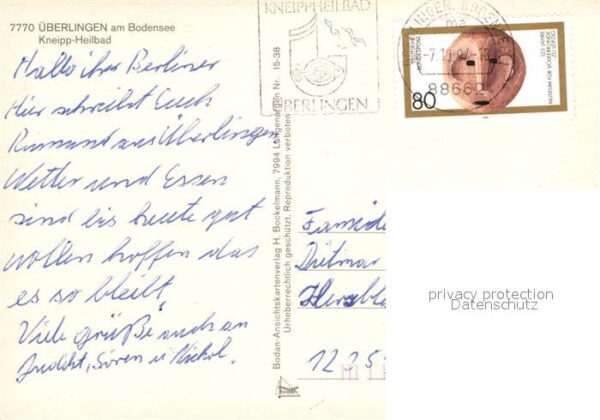 7770 ÜBERLINGEN am Bodensee
Kneipp-Heilbad
Hallo ihr Berliner
Hier schreibt Euch
aus Überlingen
Wetter und Essen
sind bis heute gut
wollen hoffen das
es so bleibt
Viele grüße auch an
Sören u
Bodan-Ansichtskartenverlag H. Bockelmann, 7994 Langenargen Nr. 15-38
Urheberrechtlich geschützt. Reproduktion verboten
KNEIPPHEILBAD
ÜBERLINGEN
BODENSEE
88662
80
DEUTSCHE BUNDESPOST
125 JAHRE
MUSEUM FÜR VÖLKERKUNDE
ZU LEIPZIG
Familie
Dietmar
privacy protection
Datenschutz